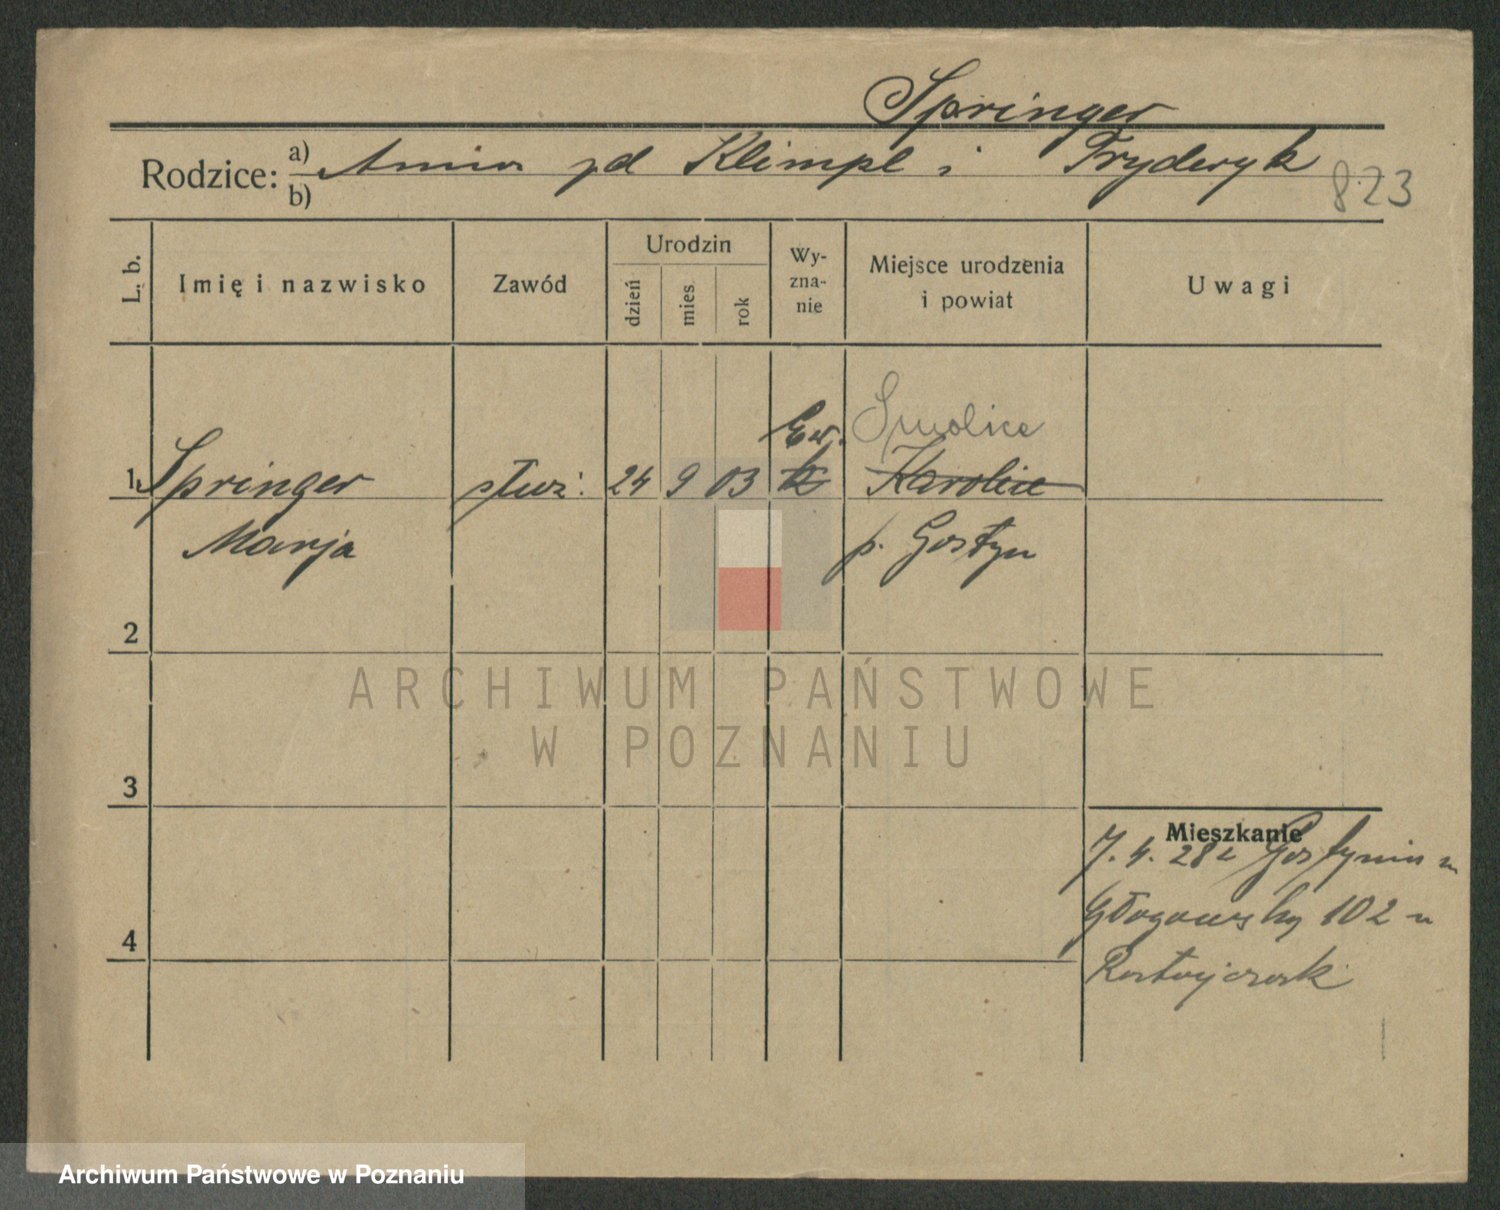 Springer
Rodzice: a) Anna zd Klimpl i Fryderyk
b)
823
L. b.
Imię i nazwisko
Zawód
Urodzin
dzień
mies
rok
Wy-
zna-
nie
Miejsce urodzenia
i powiat
Uwagi
Ew. Smolice
1. Springer służ. 24 9 03 k Karolice
Marja p. Gostyn
2
ARCHIWUM PAŃSTWOWE
W POZNANIU
3
Mieszkanie
7. 4. 28 z Gostynia
102
4
Archiwum Państwowe w Poznaniu